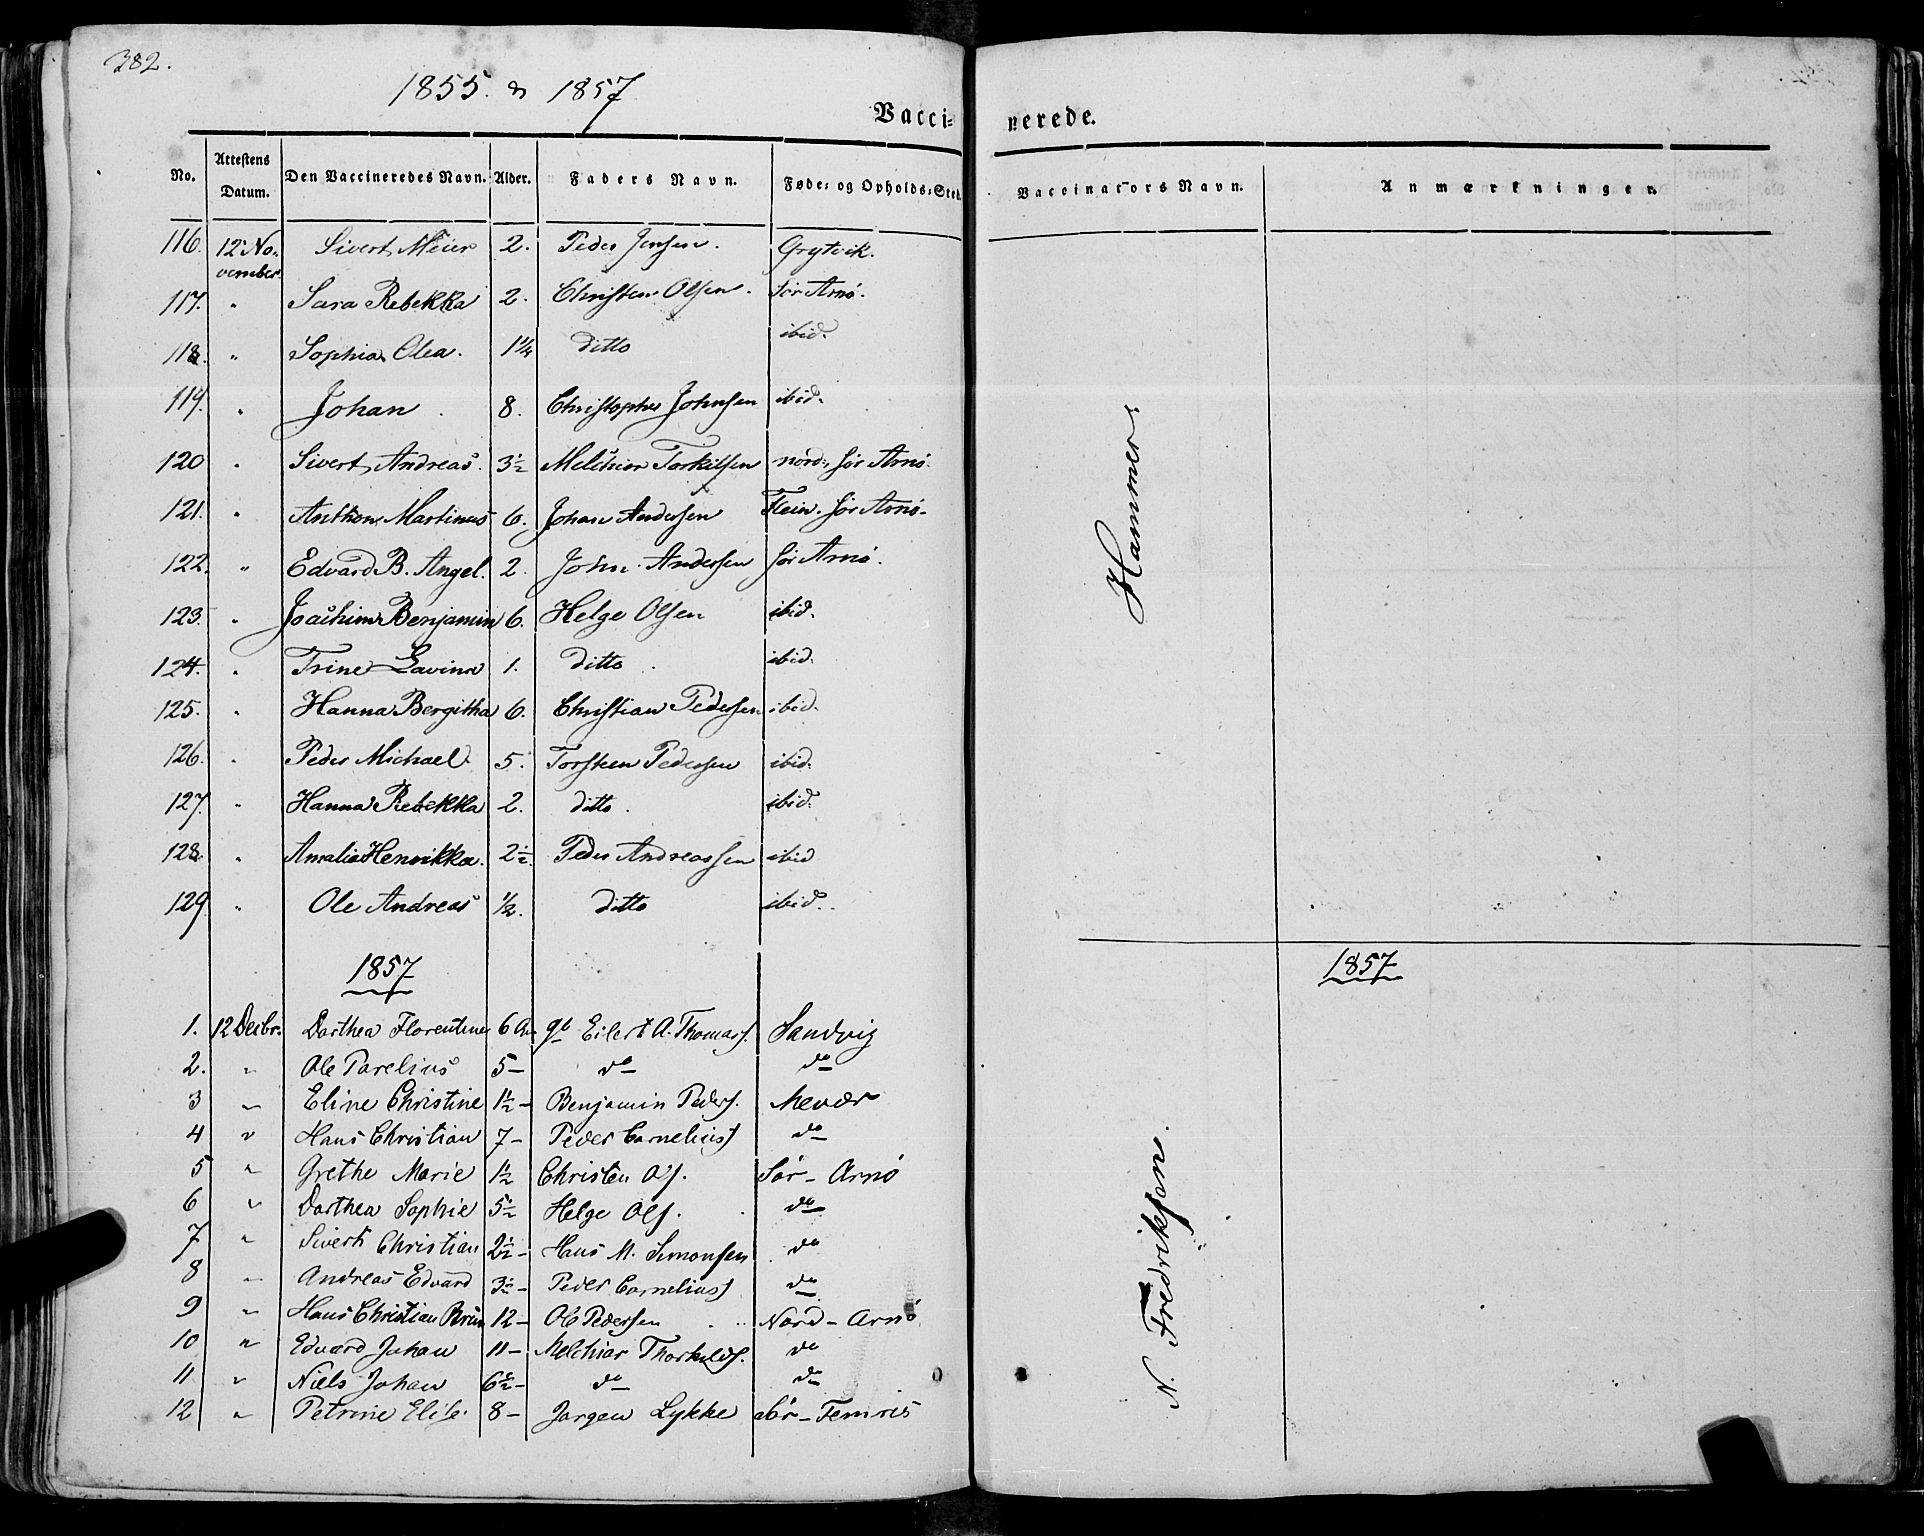 382.
1855. & 1857
Vacci=nerede.
No. Attestens Datum. Den Vaccineredes Navn. Alder. Faders Navn. Føde= og Opholds=Sted. Vaccinators Navn. Anmærkninger.
116. 12te November. Sivert Meier 2. Peder Jensen. Grytvik.
117. " Sara Rebekka 2. Christen Olsen. Sör Arnö.
118. " Sophia Olea. 1 1/4 ditto ibid.
119. " Johan. 8. Christopher Johnsen ibid.
120 " Sivert Andreas. 3½ Melchior Torkilsen nord: Sör Arnö.
121. " Anthon Martinus 6. Johan Andersen Flein. Sör Arnö.
122. " Edvard B. Angel. 2. John Andersen Sör Arnö.
123. " Joachim Benjamin 6. Helge Olsen ibid.
124. " Trine Lavina 1. ditto. ibid.
125. " Hanna Bergitha 6. Christian Pedersen ibid.
126. " Peder Michael 5. Torsten Pedersen ibid.
127. " Hanna Rebekka 2. ditto. ibid.
128. " Amalia Henrikka. 2½. Peder Andreassen ibid
129 " Ole Andreas 1/2. ditto ibid.
Hammer
1857 1857
1. 12 Decbr. Dorthea Florentine 6 Eilert A. Thomass. Sandvig
2. " Ole Parelius 5- do do
3 " Eline Christine 1½- Benjamin Peders. Mevær
4 " Hans Christian 7- Peder Corneliuss do
5 " Grethe Marie 1½ Christen Ols. Sör-Arnö
6 " Dorthea Sophie 5½ Helge Ols. do
7 " Sivert Christian 2½- Hans M. Simonsen do
8 " Andreas Edvard 3½- Peder Corneliuss do
9 " Hans Christian 12- Ole Pedersen Nord-Arnö
10 " Edvard Johan 11- Melchior Thorkilds. do
11 " Niels Johan 6½- do do
12 " Petrine Elise 8- Jörgen Lykke Sör-
N. Fredriksen.